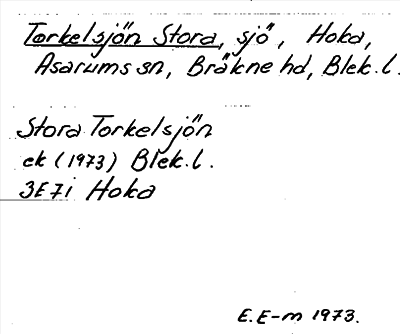 Torkelsjön Stora, sjö, Hoka,
Asarums sn, Bräkne hd, Blek.l.
Stora Torkelsjön
ek (1973) Blek.l.
3E7i Hoka
E.E-m 1973.